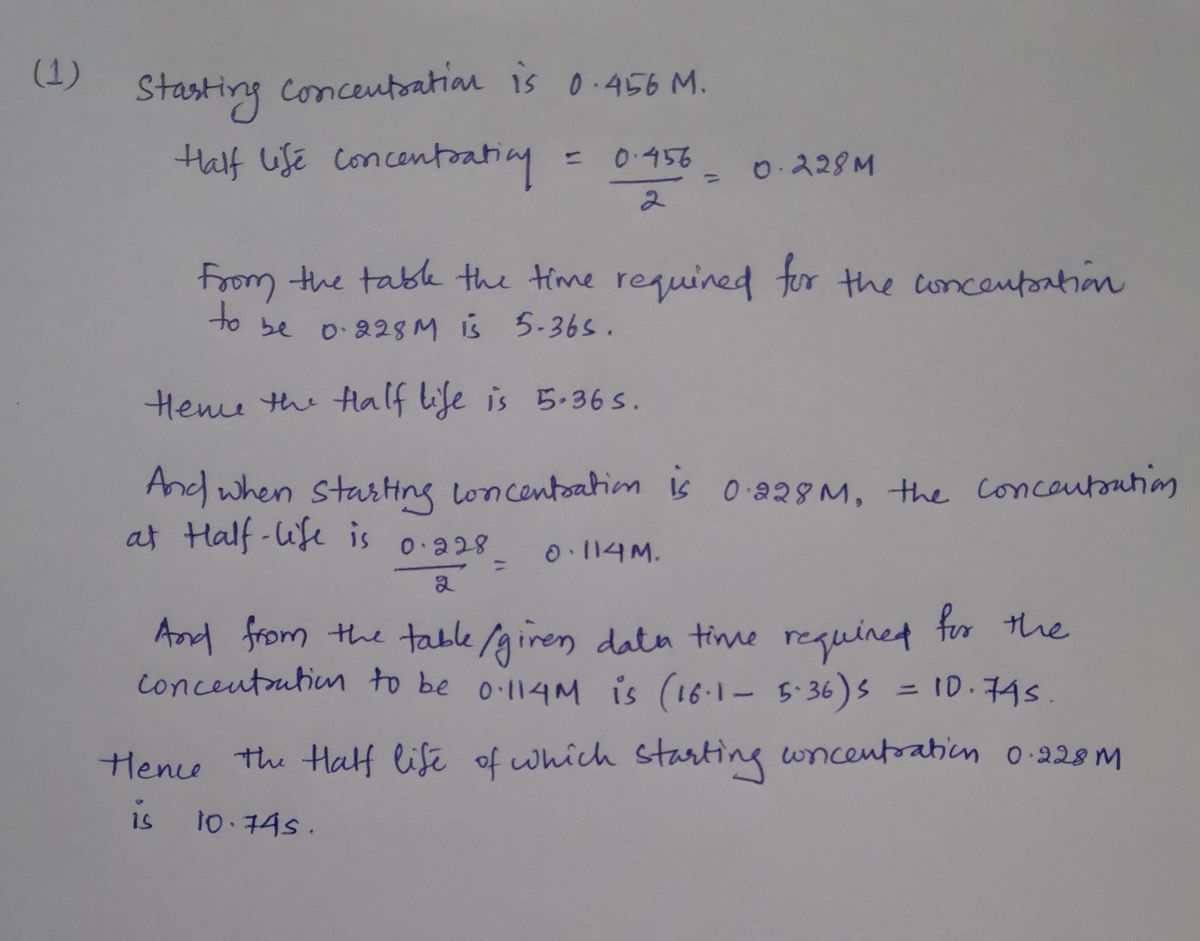 (1) Starting concentration is 0.456 M.
Half life concentration = 0.456 / 2 = 0.228M
From the table the time required for the concentration
to be 0.228M is 5.36s.
Hence the Half life is 5.36s.
And when starting concentration is 0.228M, the concentration
at Half-life is 0.228 / 2 = 0.114M.
And from the table/given data time required for the
concentration to be 0.114M is (16.1 - 5.36)s = 10.74s.
Hence the Half life of which starting concentration 0.228M
is 10.74s.